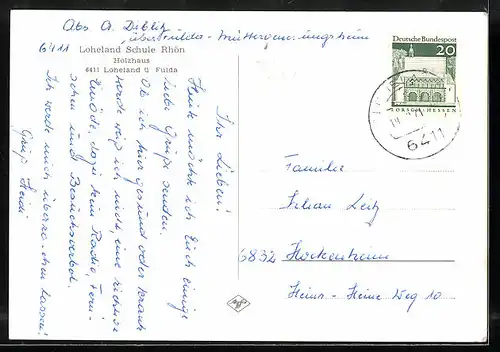 Abs A. Diblik
über Fulda - Müttergenesungsheim
6411
Loheland Schule Rhön
Holzhaus
6411 Loheland ü Fulda
Ihr Lieben!
Heute möchte ich Euch einige
liebe Grüße senden.
Ob ich hier gesund oder krank
werde weiß ich nicht eine richtige
Einöde, dazu kein Radio, Fern-
sehen und Besuchsverbot.
Ich werde mich überraschen lassen!
Gruß Heidi
Deutsche Bundespost
20
LORSCH/HESSEN
6411
Familie
6832 Hockenheim
Heinr.-Heine Weg 10